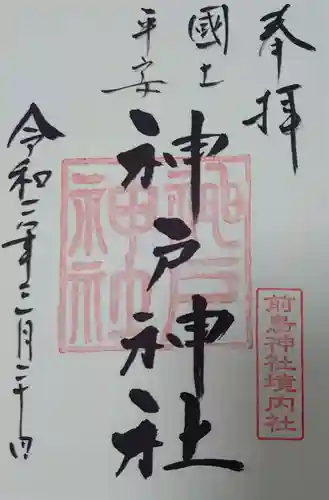 奉拝
國土
平安
神戸神社
神戸神社
前鳥神社境内社
令和二年三月二十日